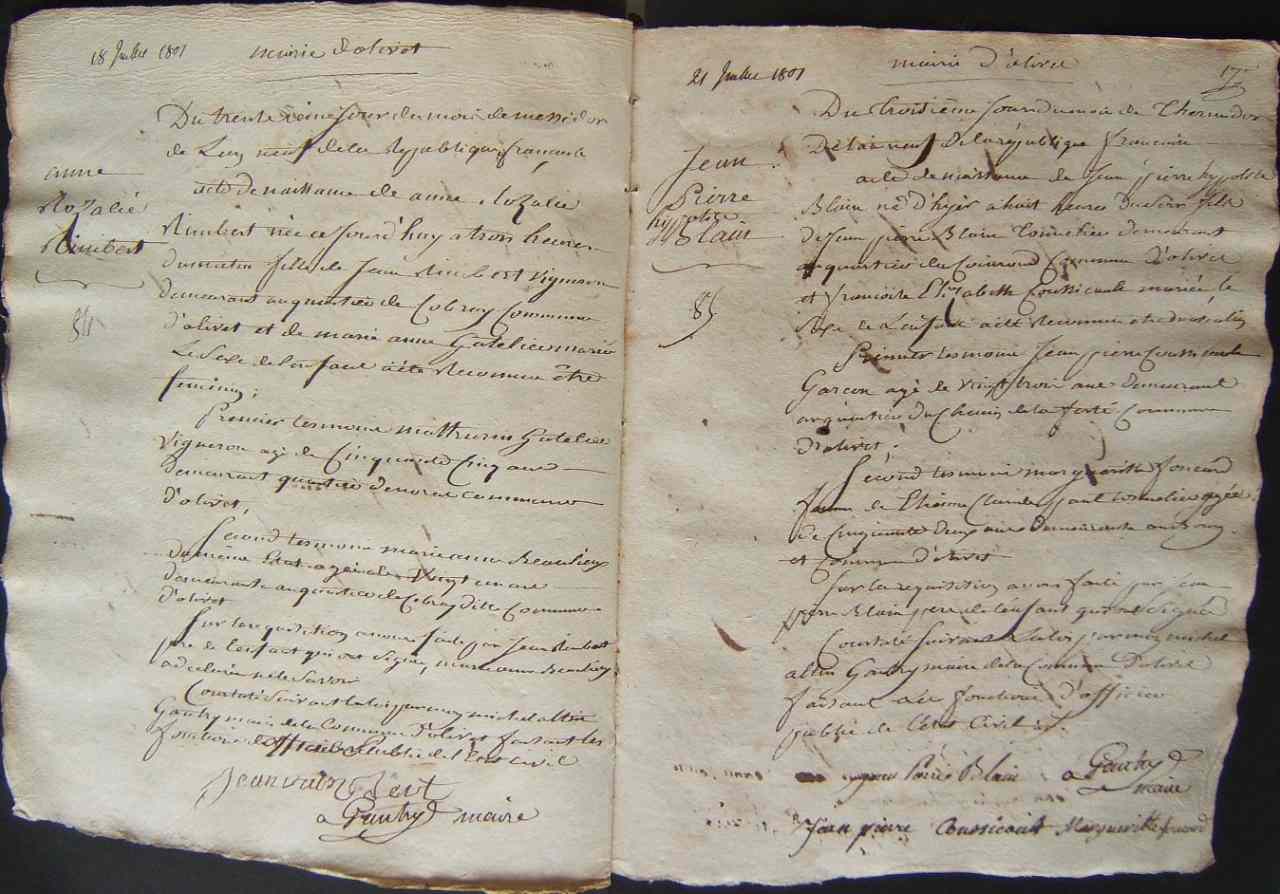 18 Juillet 1801
mairie d'olivet
Du trentième jour du mois de messidor
de Lan neuf de la Republique francaise
acte de naissance de anne Rozalie
Rimbert née ce jourd'huy a trois heures
du matin fille de Jean Rimbert vigneron
demeurant au quartier de Cobray Commune
d'olivet et de marie anne Gatellier mariés
Le Sexe de l'enfant a été Reconnu être
feminin;
anne
Rozalié
Rimbert
Premier tesmoins mathurin Gatellier
vigneron agé de Cinquante Cinq ans
demeurant quartier commune
d'olivet,
Second tesmoins marie anne Beaulieu
du même Etat agée de Vingt un ans
demeurante au quartier de Cobray ditte Commune
d'olivet
Sur la requisition a nous faite par Jean Rimbert
pere de l'enfant qui ont Signé, marie anne Beaulieu
a declaré ne le Savoir
Constaté Suivant la loi par moy michel altin
Gauthy maire de la Commune d'olivet faisant les
fonctions d'officier Public de l'Etat Civil
a Gauthy maire
21 Juillet 1801
mairie d'olivet
Du troisième jour du mois de Thermidor
De l'an neuf De la république francaise
acte de naissance de Jean pierre hypolite
Blain né d'hyer a huit heures du soir fils
de Jean pierre Blain Tonnelier demeurant
au quartier du Commune d'olivet
et francoise Elizabeth Coussicault mariés, le
Sexe de L'enfant a été Reconnu etre masculin
Jean
Pierre
hypolite
Blain
85
Premier tesmoins Jean pierre Coussicault
Garcon agé de vingt trois ans demeurant
au quartier du Chemin de la ferté Commune
d'olivet;
Second tesmoins margueritte foucard
femme de Etienne Claude agée
de Cinquante Deux ans demeurante au Bourg
et Commune d'olivet
Sur la requisition a nous faite par Jean
pierre Blain pere de l'enfant qui ont Signé
Constaté Suivant La loi par moy michel
altin Gauthy maire de la Commune d'olivet
faisant les fonctions d'officier
public de l'etat Civil
Pierre Blain a Gauthy
maire
Jean pierre Coussicault Margueritte foucard